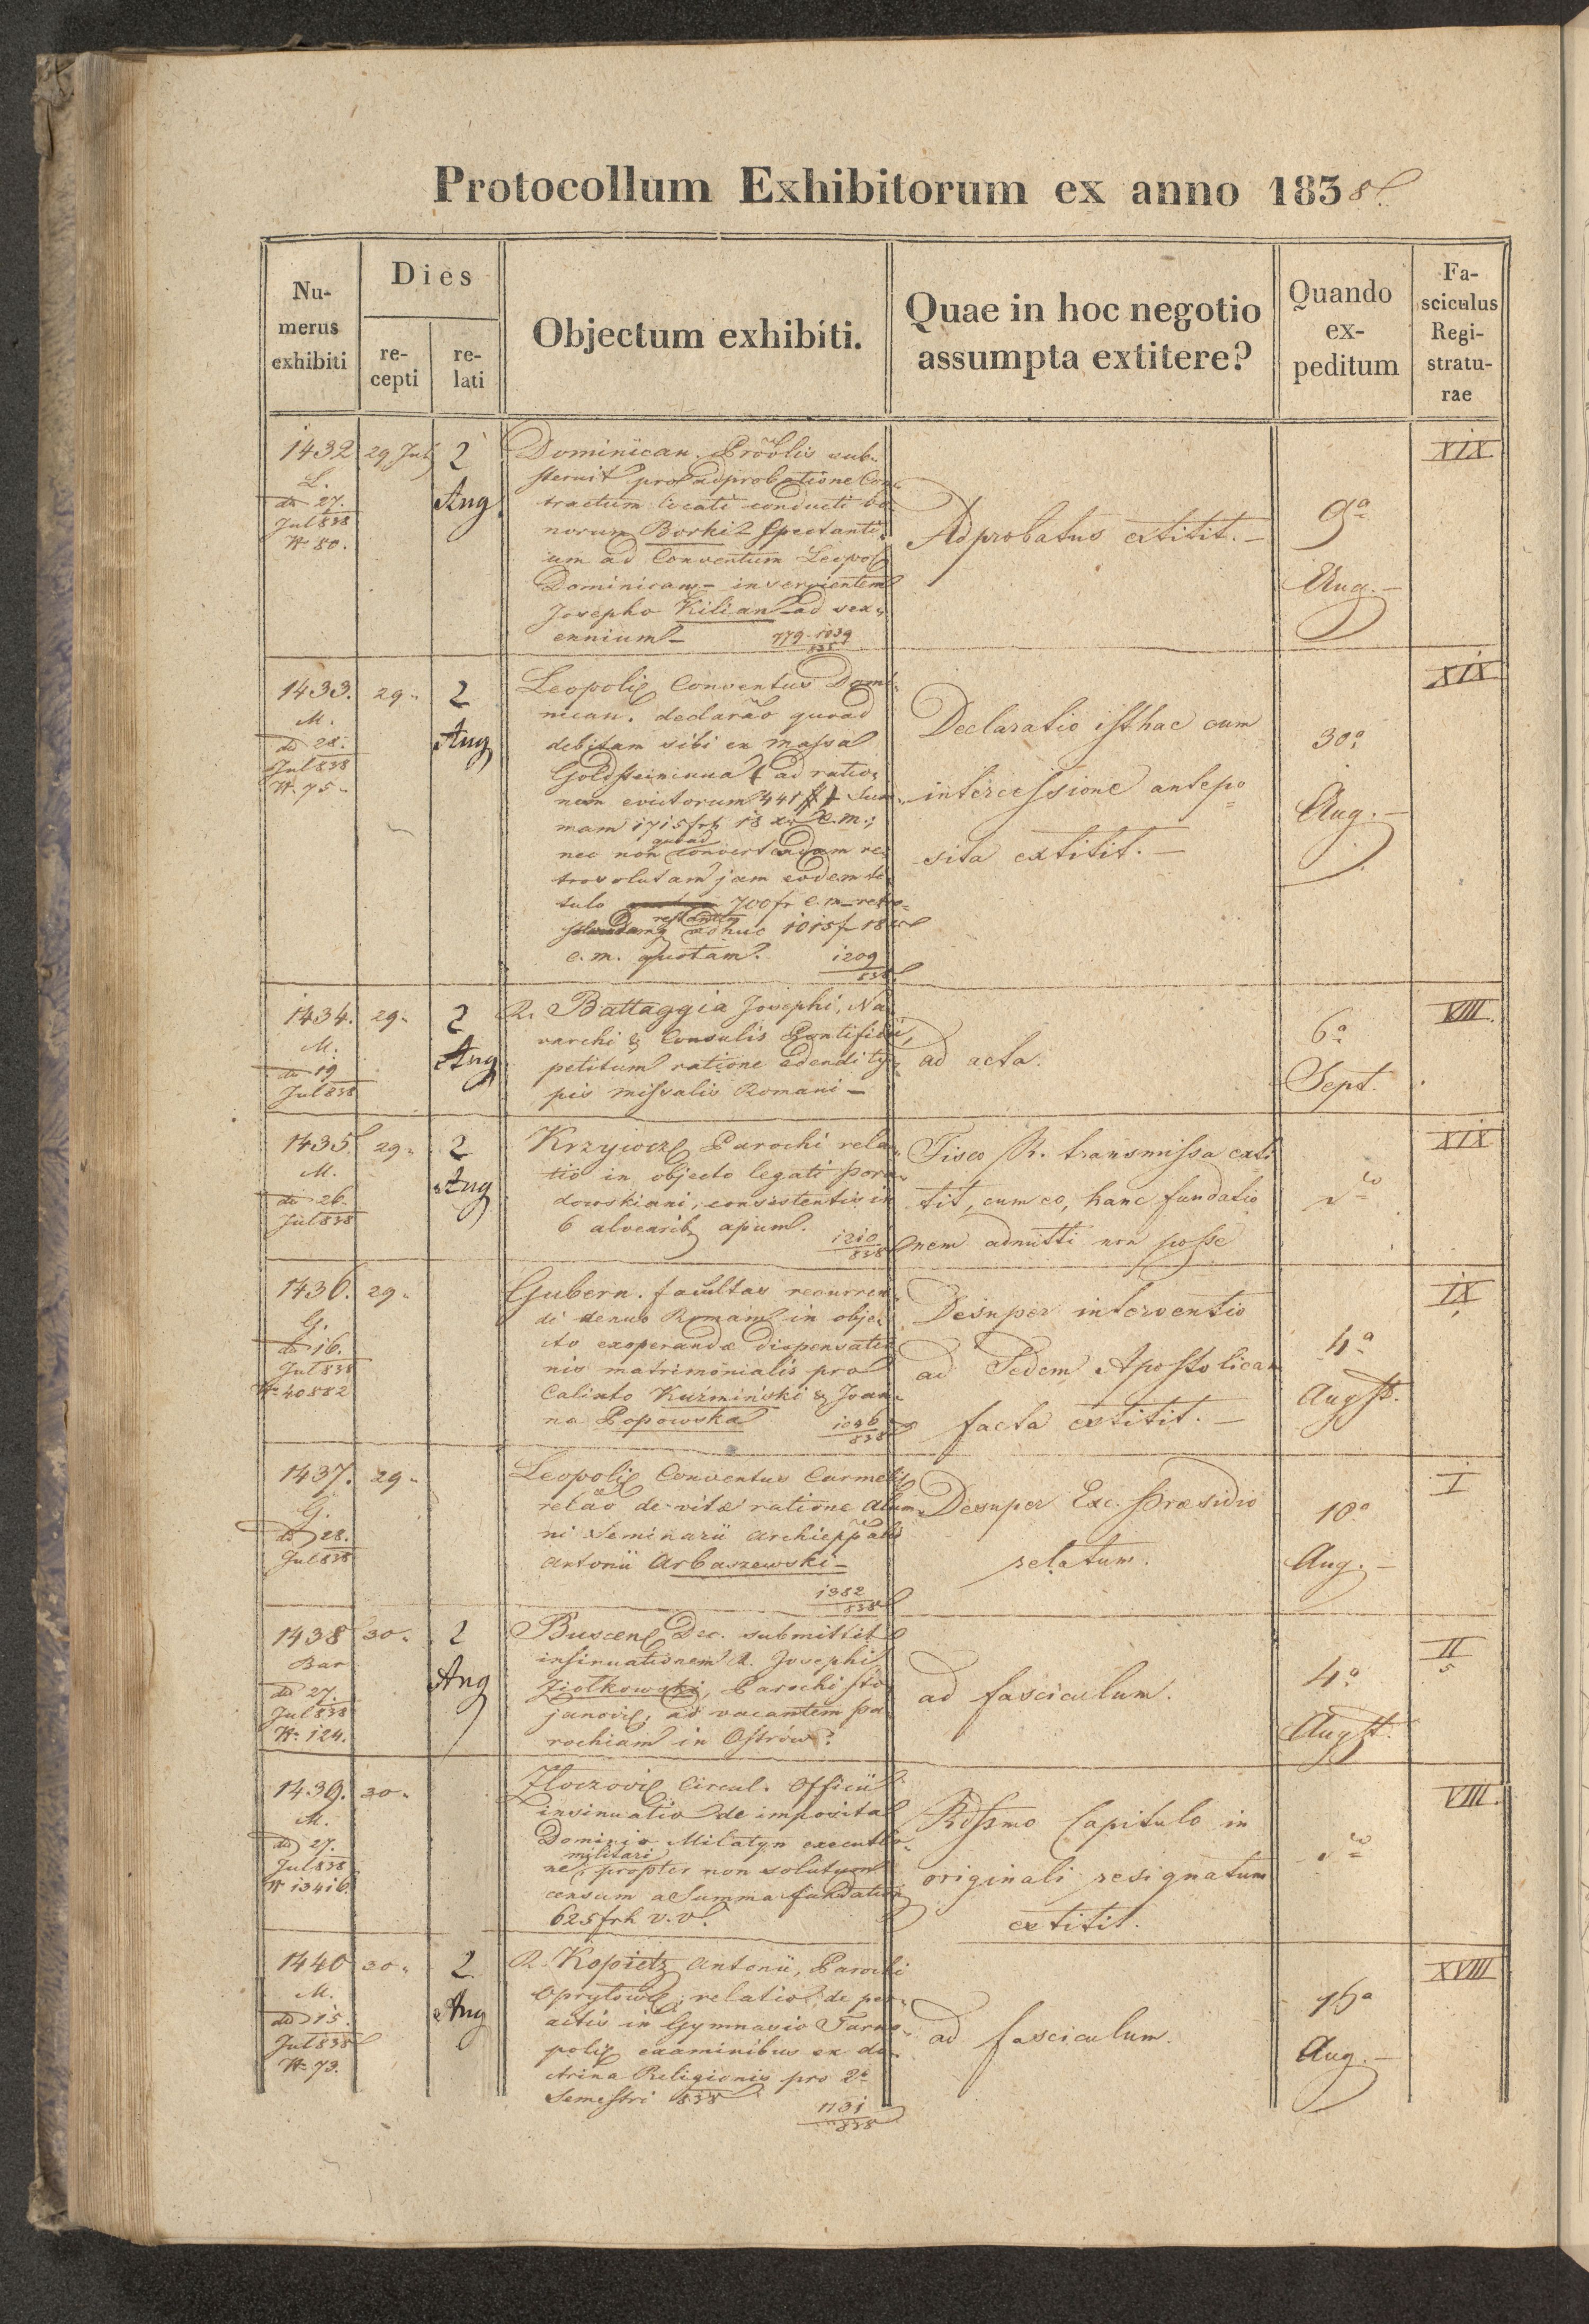 Protocollum Exhibitorum ex anno 1838.
Nu-
merus
exhibiti
Dies
re-
cepti
re-
lati
Objectum exhibiti.
Quae in hoc negotio
assumpta extitere?
Quando
ex-
peditum
Fa-
sciculus
Regi-
stratu-
rae
1432
L.
dd 27.
Jul 838
N 80.
29 Jul
2
Aug
Dominican. Prõõlis sub-
sternit pro adprobatione Con-
tractum locati conducti bo-
norum Borki Spectanti-
um ad Conventum Leopol
Dominican inservientem
Josepho Kilian ad sex-
ennium
779. 1039
838
Adprobatus extitit. –
9a
Aug. –
XIX
1433.
M.
dd 28.
Jul 838
N. 75.
29.
2
Aug
Leopoli Conventus Domi-
nican. declarão quoad
debitam sibi ex massa
ad ratio-
nem evictorum 441 Sum-
mam 1715 fr 18 xr C.m.;
quoad
nec non convertendam re-
trosolutam jam eodem ti-
tulo 700 fr C.m.
restantem
adhuc 1015 f 18 xr
C.m. quotam.
1209
838
Declaratio isthac cum
intercessione antepo
sita extitit. –
30a
Aug. –
XIX
1434.
M.
dd 19
Jul 838
29.
2
Aug
R. Battaggia Josephi, Na-
varchi & Consulis Pontificii,
petitum ratione edendi ty-
pis missalis Romani –
ad acta.
6a
Sept.
VIII.
1435
M.
dd 26.
Jul 838
29.
2
Aug
Krzywcze Parochi rela-
tio in objecto legati Pora-
dowskiani, consistentis in
6 alvearib apum.
1210
838
Fisco R. transmissa exti
tit, cum eo, hanc fundatio
nem admitti non posse
do
XIX
1436.
G.
dd 16.
Jul 838
N 40882
29.
Gubern. facultas recurren-
di denuo Romam in obje-
cto exoperandæ dispensatio-
nis matrimonialis pro
Calixto Kuźmiński & Joan-
na Popowska
1046
838
Desuper interventio
ad Sedem Apostolicam
facta extitit. –
4a
Augst.
IX
1437.
G.
dd 28.
Jul 838
29.
Leopoli Conventus Carmelit
relão de vitæ ratione alum-
ni Seminarii archieppalis
Antonii Arbaszewski –
1382
838
Desuper Exc. Præsidio
relatum.
10a
Aug. –
I
1438
Bar
dd 27.
Jul 838
N. 124.
30.
2
Aug
Buscen Dec. submittit
insinuationem R. Josephi
Ziołkowski, Parochi Sto-
janovi, ad vacantem pa-
rochiam in Ostrów.
ad fasciculum.
4a
Augst.
II
5
1439.
M.
dd 27.
Jul 838
N 13416
30.
Zloczovi Circul. Officii
insinuatio de imposita
Dominio Milatyn executio-
militari
ne, propter non solutum
censum a Summa fundation
625 frh v.v.
Rdssmo Capitulo in
originali resignatum
extitit.
do
VIII.
1440
M.
dd 15.
Jul 838
N. 73.
30.
2
Aug
R. Kopietz Antonii, Parochi
Opryłowce, relatio de per-
actis in Gymnasio Tarno-
poli examinibus ex do-
ctrina Religionis pro 2o
Semestri 838
1131
838
ad fasciculum.
16a
Aug. –
XVIII